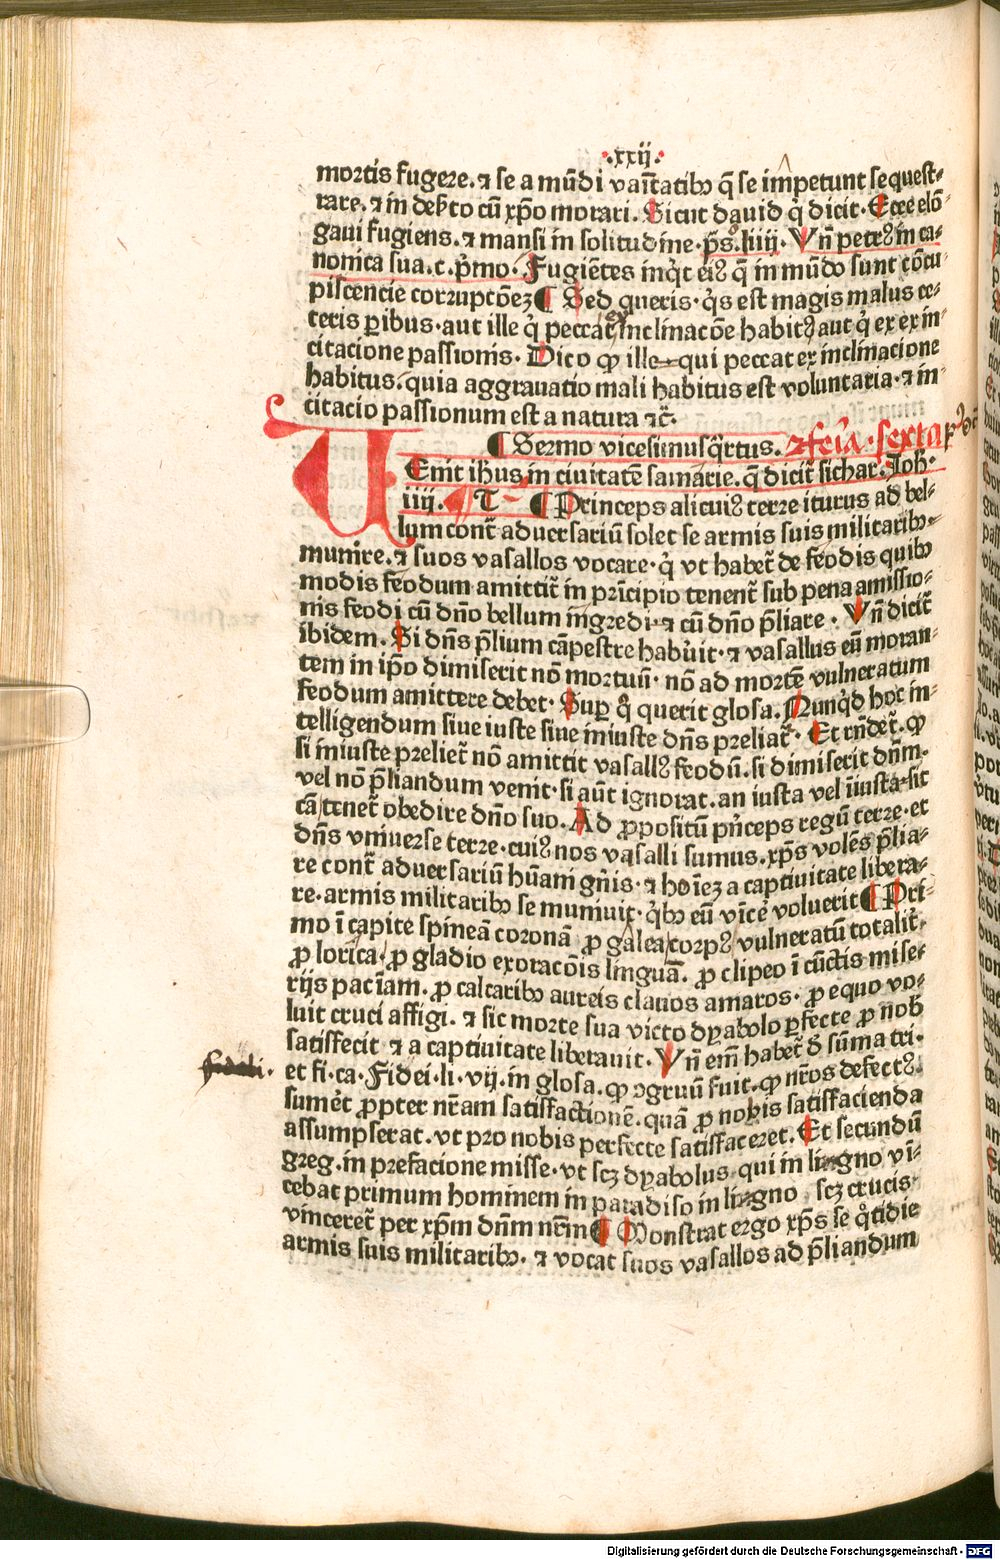 ·xxij·
mortis fugere. ⁊ se a mūdi vaītatibꝫ q̄ se impetunt sequest⸗
rare. ⁊ in deb̓to cū xp̄o morari. Sicut dauid q̓ dicit· Ecce elō⸗
gaui fugiens. ⁊ mansi in solitudine· p̄s. liiij · Vn̄ petrꝰ in ca⸗
nonica sua. c. p̓mo. Fugiētes inq̓t eiꝰ q̄ in mūdo sunt cōcu⸗
piscencie corrupcōeꝫ ¶ Sed queris· q̓s est magis malus ce⸗
teris ꝑibus· aut ille q̓ peccat ex inclinacōe habitꝰ aut q̓ ex ex in⸗
citacione passionis · Dico ꝙ ille qui peccat ex inclinacione
habitus. quia aggrauatio mali habitus est voluntaria · ⁊ in⸗
citacio passionum est a natura ⁊c̄·
¶ Sermo vicesimusq̓rtus. ⁊ feīa · sexta
VEnit ihūs in ciuitatē samarie. q̄ dicit̄ sichar. Joh̄·
iiij. T ¶ Princeps alicuiꝰ terre iturus ad bel⸗
lum cont̄ aduersariū solet se armis suis militaribꝫ⸗
munire. ⁊ suos vasallos vocare· q̓ vt habet̄ de feodis quibꝫ
modis feodum amittit̄ in prīcipio tenent̄ sub pena amissio⸗
nis feodi cū dn̄o bellum īngredi · ⁊ cū dn̄o p̄liare · Vn̄ dicit̄
ibidem. Si dn̄s p̄lium cāpestre habu̓it · ⁊ vasallus eū moran⸗
tem in ip̄o dimiserit nō mortuū· nō ad mortē vulneratum
feodum amittere debet· Suꝑ q̊ querit glosa. Nunq̓d hoc in⸗
telligendum siue iuste siue iniuste dn̄s preliat̄· Et rn̄det̄. ꝙ
si iniuste preliet̄ nō amittit vasallꝰ feodū. si dimiserit dn̄m·
vel nō p̄liandum venit· si aūt ignorat. an iusta vel iīusta· sit
cā tenet̄ obedire dn̄o suo. Ad ꝓpositū pn̓ceps regū terre· et
dn̄s vniuerse terre· cuiꝰ nos vasalli sumus. xp̄s volēs p̄lia⸗
re cont̄ aduersariū hūani gn̄is· ⁊ hoīeꝫ a captiuitate libera⸗
re· armis militaribꝫ se muniuit· q̓bꝫ eū vīce̓ voluerit ¶ Pri⸗
mo ī capite spineā coronā ꝓ galea corpꝰ vulneratū totalit̓·
ꝓ lorīca· ꝓ gladio exoracōis linguā. ꝓ clipeo ī cūctis mise⸗
rijs pacīam. ꝓ calcaribꝫ aureis clauos amaros· ꝓ equo vo⸗
luit cruci affigi. ⁊ sic morte sua victo dyabolo ꝑfecte ꝓ nob̄
satisfecit ⁊ a captiuitate liberauit. Vn̄ em̄ habet̄ d̓ sūma tri·
et fi· ca · Fidei· li· vij. in glosa. ꝙ ↄgruū fuit· ꝙ nr̄os defectꝰ·
sume̓t ꝓpter nr̄am satisfactionē. quā ꝓ nobis satisfacienda
assumpserat. vt pro nobis perfecte satisfaceret. Et secundū
greg. in prefacione misse· vt scꝫ dyabolus· qui in ligno vi⸗
cebat primum hominem in paradiso in ligno scꝫ crucis·
vinceret̄ per xp̄m dn̄m nr̄m ¶ Monstrat ergo xp̄s se q̊tidie
armis suis militaribꝫ· ⁊ vocat suos vasallos ad p̄liandum